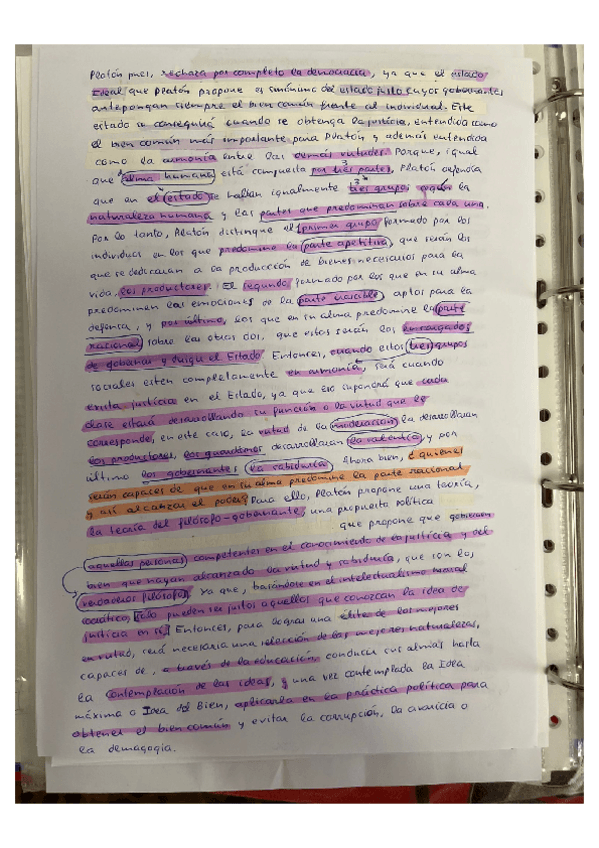 Platón pues, rechaza por completo la democracia, ya que el estado
ideal que Platón propone es sinónimo del estado justo cuyos gobernantes
antepongan siempre el bien común frente al individual. Este
estado se conseguirá cuando se obtenga la justicia, entendida como
el bien común más importante para Platón y además entendida
como la armonía entre las demás virtudes. Porque, igual
que alma humana está compuesta por tres partes, Platón defendía
que en el estado se hallan igualmente tres grupos según la
naturaleza humana y las partes que predominan sobre cada una.
Por lo tanto, Platón distingue el primer grupo formado por los
individuos en los que predomine la parte apetitiva, que serán los
que se dedicaran a la producción de bienes necesarios para la
vida, los productores. El segundo formado por los que en su alma
predominen las emociones de la parte irascible, aptos para la
defensa, y por último, los que en su alma predomine la parte
racional sobre las otras dos, que estos serán los encargados
de gobernar y dirigir el Estado. Entonces, cuando estos tres grupos
sociales estén completamente en armonía, será cuando
exista justicia en el Estado, ya que eso supondrá que cada
clase estará desarrollando su función o la virtud que le
corresponde, en este caso, la virtud de la moderación la desarrollarán
los productores, los guardianes desarrollarán la valentía y por
último los gobernantes la sabiduría. Ahora bien, ¿quienes
serán capaces de que en su alma predomine la parte racional
y así alcanzar el poder? Para ello, Platón propone una teoría,
la teoría del filósofo-gobernante, una propuesta política
que propone que gobiernen
aquellas personas competentes en el conocimiento de la justicia y del
bien que hayan alcanzado la virtud y sabiduría, que son los
verdaderos filósofos. Ya que, basándose en el intelectualismo moral
socrático, sólo pueden ser justos aquellos que conozcan la idea de
justicia en sí. Entonces, para lograr una élite de los mejores
en virtud, será necesaria una selección de las mejores naturalezas,
capaces de, a través de la educación, conducir sus almas hasta
la contemplación de las ideas, y una vez contemplada la Idea
máxima o Idea del Bien, aplicarla en la práctica política para
obtener el bien común y evitar la corrupción, la avaricia o
la demagogia.